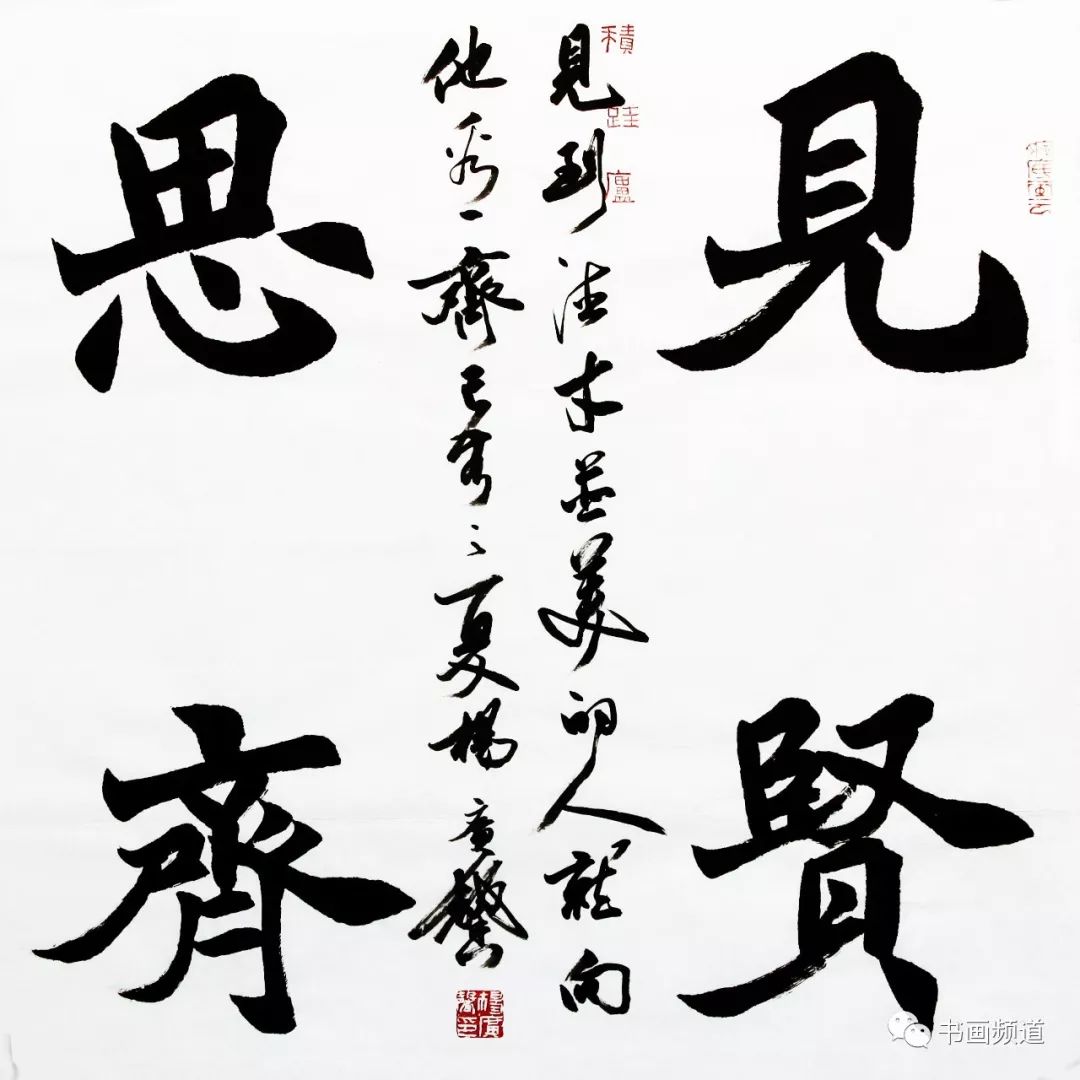 見賢
見到德才並美的人就向
他看一齊己亥之夏楊廣馨
思齊
積跬廬
楊廣馨印
书画频道